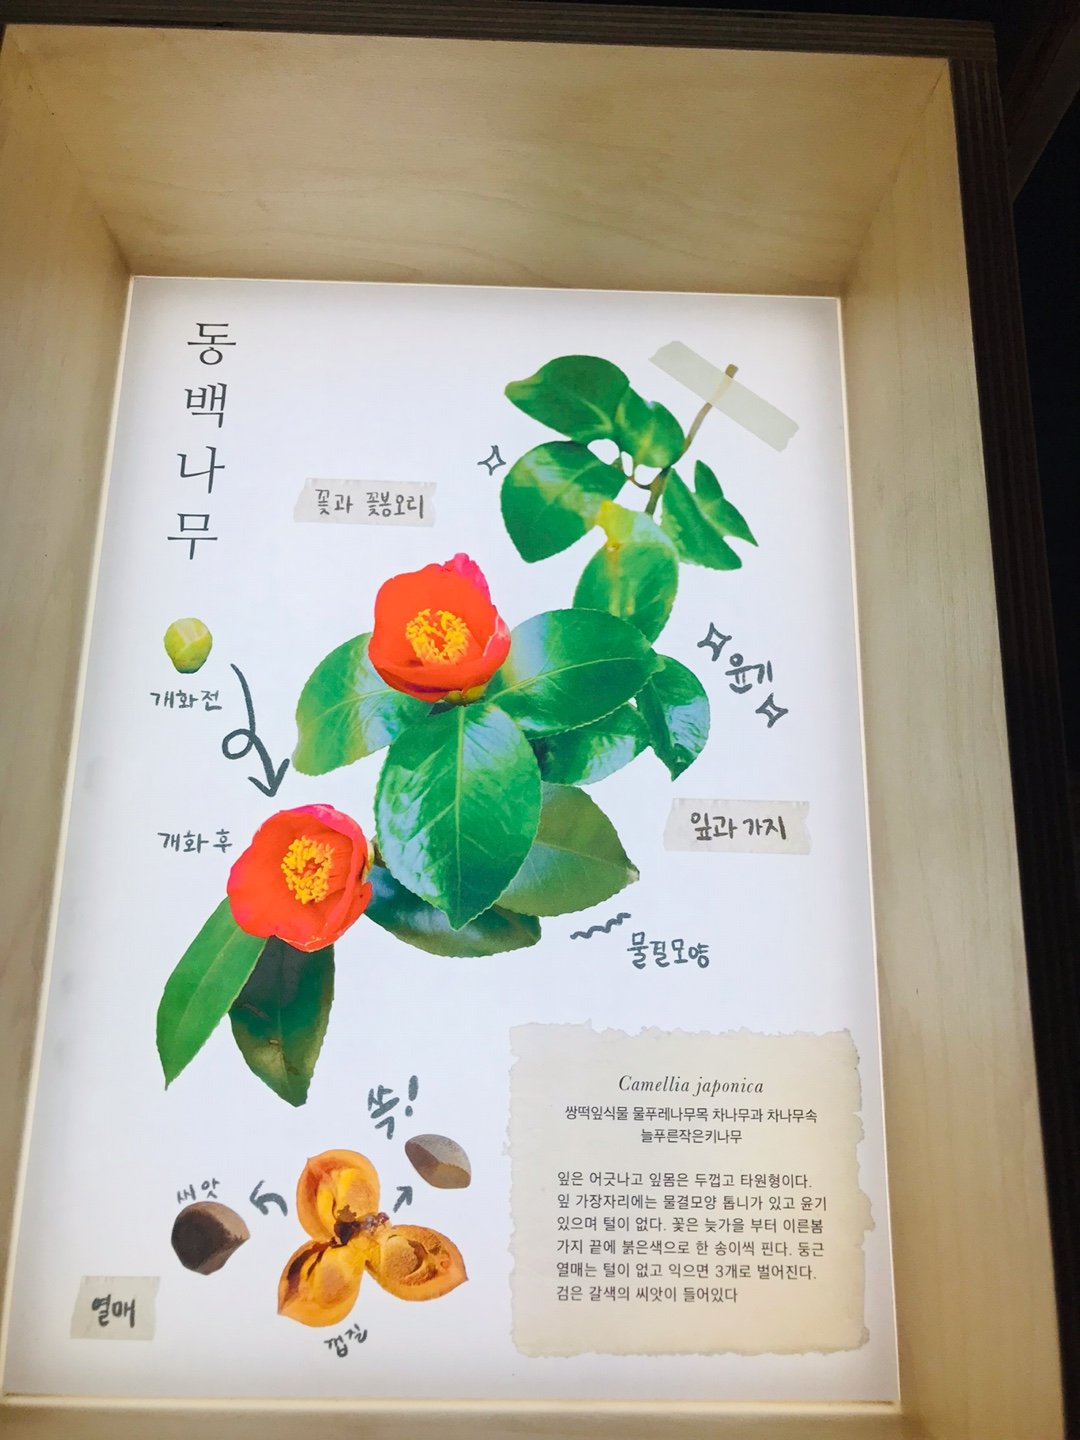 동백나무
꽃과 꽃봉오리
개화전
윤기
개화 후
잎과 가지
물결모양
Camellia japonica
쌍떡잎식물 물푸레나무목 차나무과 차나무속
늘푸른작은키나무
잎은 어긋나고 잎몸은 두껍고 타원형이다.
잎 가장자리에는 물결모양 톱니가 있고 윤기
있으며 털이 없다. 꽃은 늦가을 부터 이른봄
가지 끝에 붉은색으로 한 송이씩 핀다. 둥근
열매는 털이 없고 익으면 3개로 벌어진다.
검은 갈색의 씨앗이 들어있다
쏙!
씨앗
열매
껍질